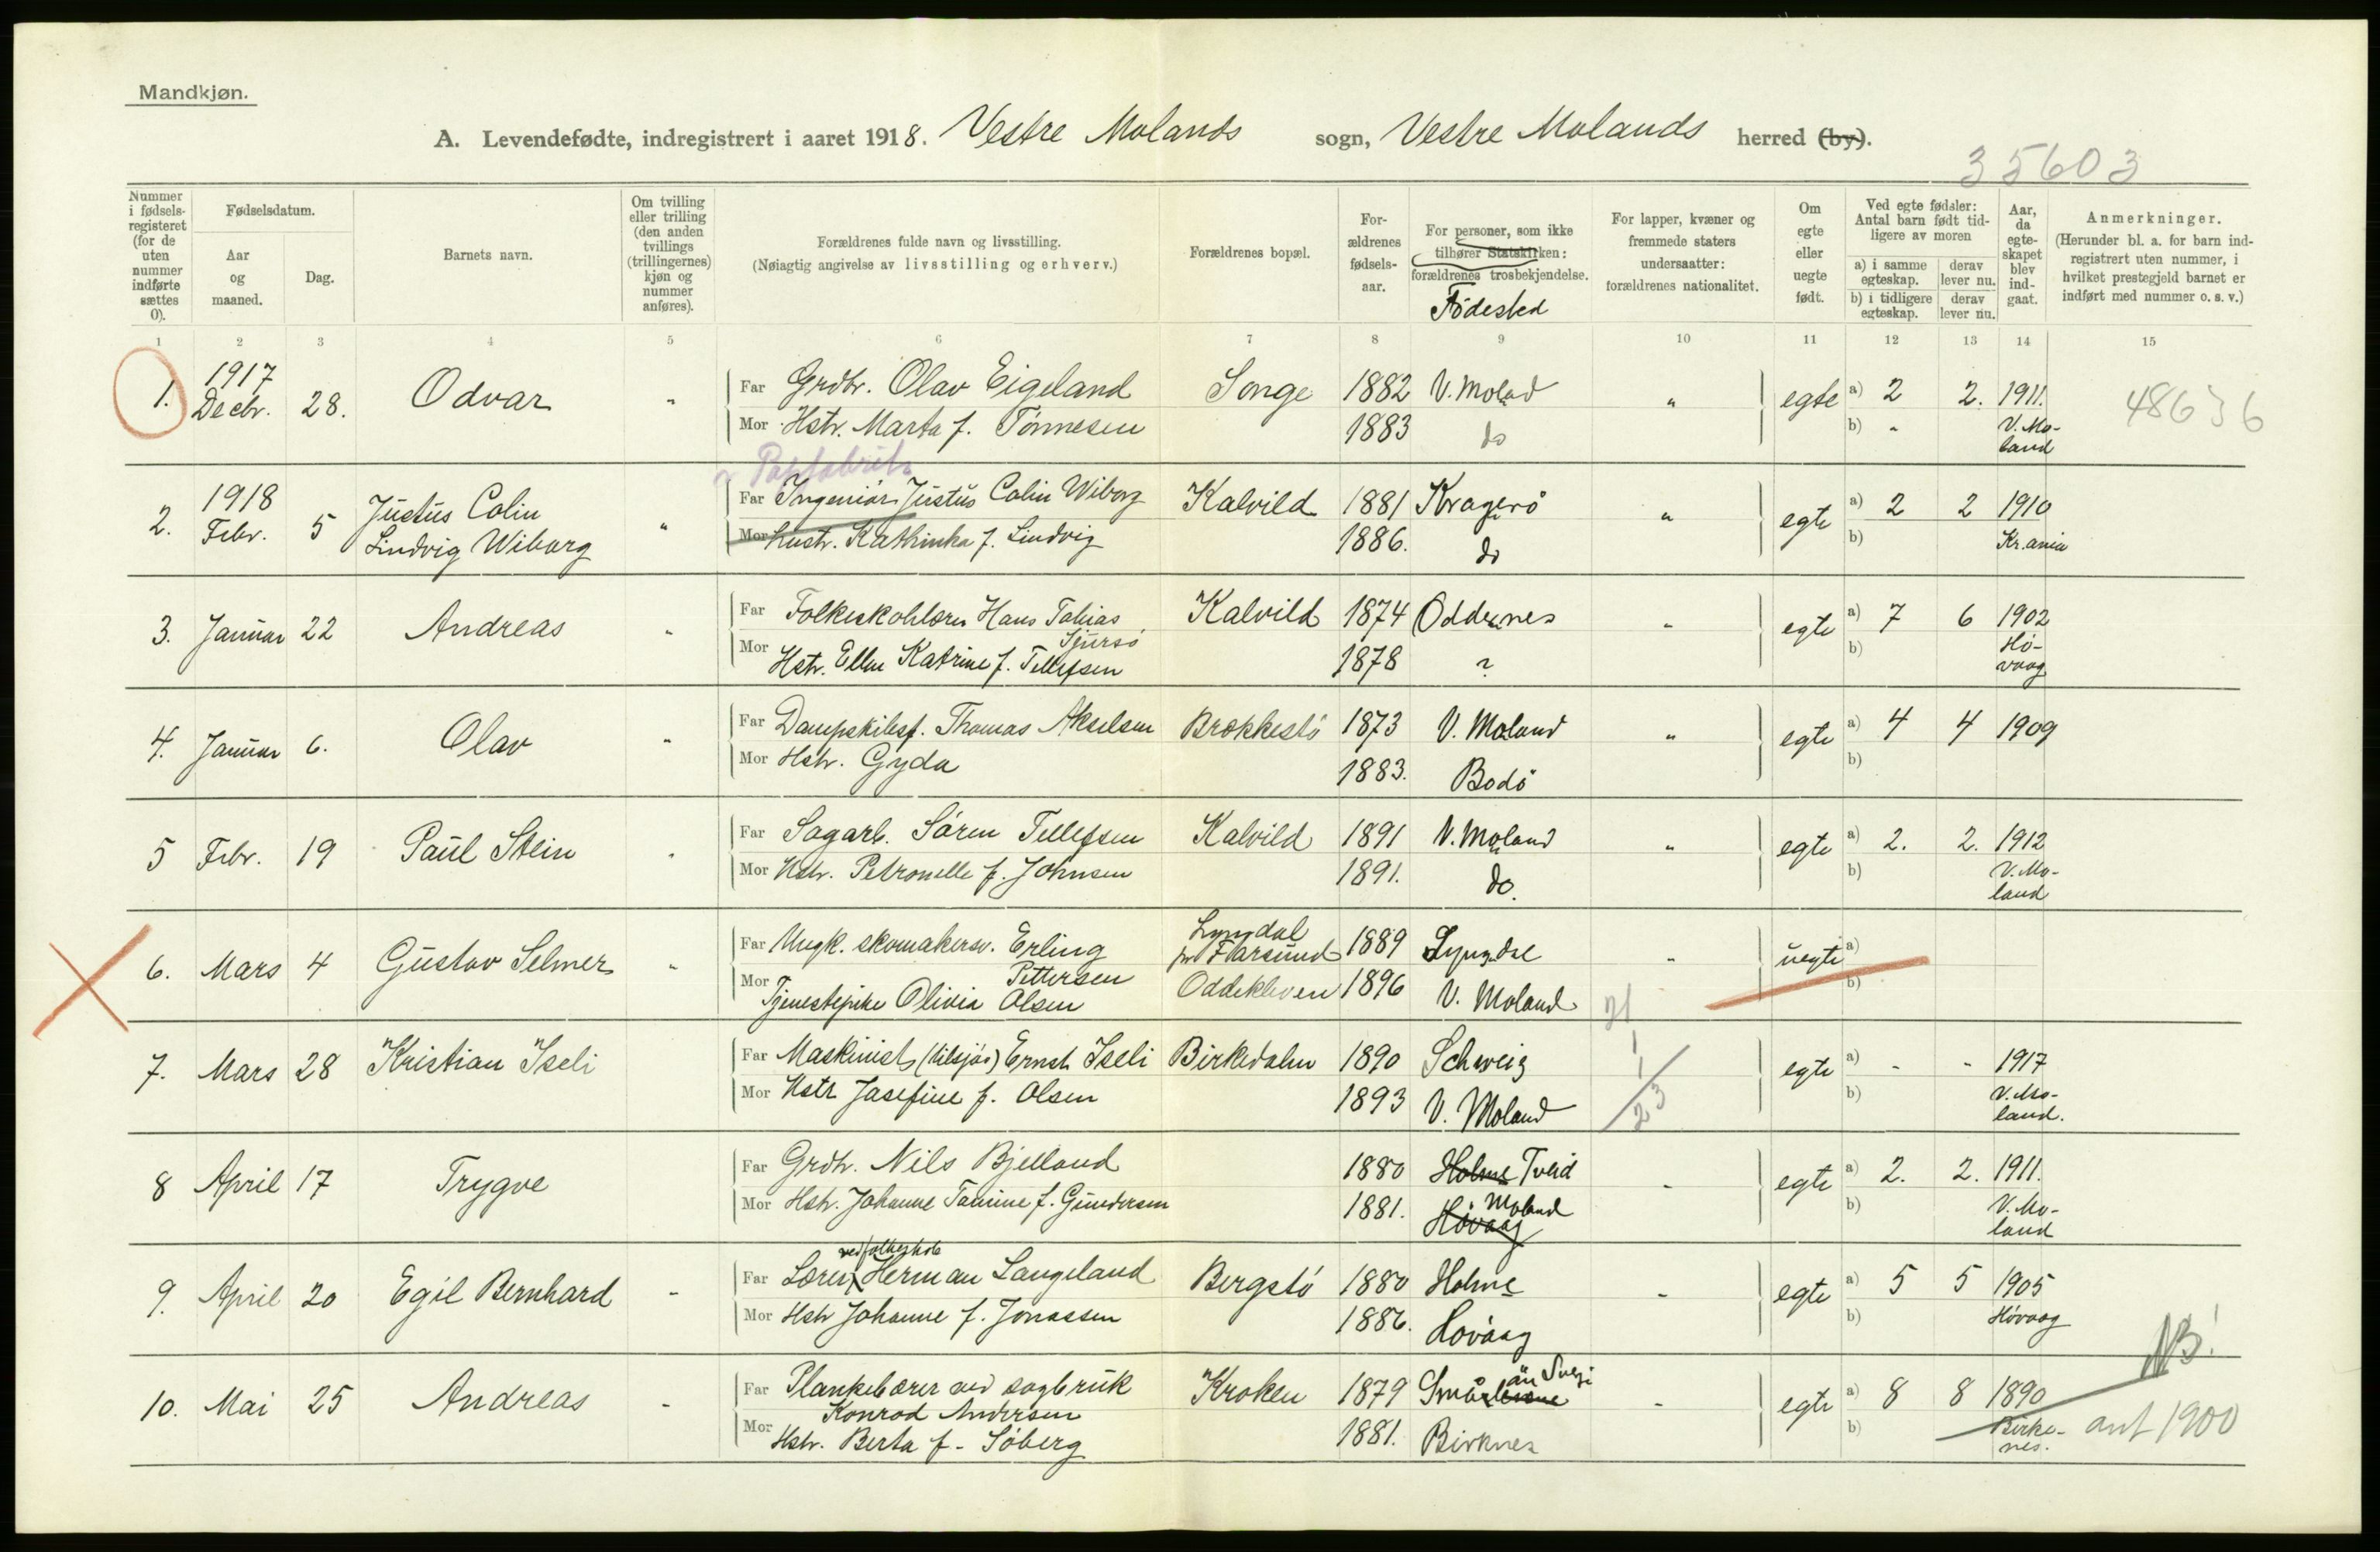 Mandkjøn.
A. Levendefødte, indregistrert i aaret 1918. Vestre Molands sogn, Vestre Molands herred (by).
35603
Nummer i fødsels-registeret (for de uten nummer indførte sættes 0).
Fødselsdatum.
Aar og maaned.
Dag.
Barnets navn.
Om tvilling eller trilling (den anden tvillings (trillingernes) kjøn og nummer anføres).
Forældrenes fulde navn og livsstilling.
(Nøiagtig angivelse av livsstilling og erhverv.)
Forældrenes bopæl.
For-ældrenes fødsels-aar.
For personer, som ikke tilhører Statskirken: forældrenes trosbekjendelse.
Fødested
For lapper, kvæner og fremmede staters undersaatter: forældrenes nationalitet.
Om egte eller uegte født.
Ved egte fødsler: Antal barn født tid-ligere av moren
a) i samme egteskap. derav lever nu.
b) i tidligere egteskap. derav lever nu.
Aar, da egte-skapet blev ind-gaat.
Anmerkninger.
(Herunder bl. a. for barn ind-registrert uten nummer, i hvilket prestegjeld barnet er indført med nummer o. s. v.)
1 2 3 4 5 6 7 8 9 10 11 12 13 14 15
1. 1917 Decbr. 28. Odvar " Far Grdbr. Olav Eigeland Songe 1882 V. Molad " egte a) 2 2. 1911. 48636
Mor Hstr. Marta f. Tönnesen 1883 do b) " V. Mo-land
Papfabrik
2. 1918 Febr. 5 Justus Colin Lindvig Wiborg " Far Ingeniör Justus Colin Wiborg Kalvild 1881 Kragerö " egte a) 2 2 1910
Mor Hustr. Kathinka f. Lindvig 1886. do b) Kr.ania
3. Januar 22 Andreas " Far Folkeskolelærer Hans Tobias Kalvild 1874 Oddernes " egte a) 7 6 1902
Mor Hstr. Ellen Katrine f. Tellefsen 1878 ? b) Hö-vaag
4. Januar 6. Olav " Far Dampskibsf. Thomas Akselsen Brækkestö 1873 V. Moland " egte a) 4 4 1909
Mor Hstr. Gyda 1883. Bodö b)
5 Febr. 19 Paul Stein " Far Sagarb. Sören Tellefsen Kalvild 1891 V. Moland " egte a) 2. 2. 1912
Mor Hstr. Petronelle f. Johnsen 1891. do. b) V. Mo-land
6. Mars 4 Gustav Selmer " Far Ungk. skomakersv. Erling Pettersen Lyngdal pr Farsund 1889 Lyngdal " uegte a)
Mor Tjenestepike Olivia Olsen Oddekleven 1896 V. Moland b)
7. Mars 28 Kristian Iseli Far Maskinist (tilsjös) Ernst Iseli Birkedalen 1890 Schweiz egte a) " " 1917
Mor Hstr Josefine f. Olsen 1893 V. Moland b) V. Mo-land.
8 April 17 Trygve Far Grdbr. Nils Bjelland 1880 Holme Tveid " egte a) 2. 2. 1911.
Mor Hstr. Johanne Tomine f. Gundersen 1881. Hövaag Moland b) V. Mo-land
9. April 20 Egil Bernhard " Far Lærer ved folkeskole Herman Langeland Bergstö 1880 Holme " egte a) 5 5 1905
Mor Hstr Johanne f. Jonassen 1886. Hövaag b) Hövaag
NB!
10. Mai 25 Andreas " Far Plankebærer ved sagbruk Konrad Andersen Kroken 1879 " egte a) 8 8 1890
Mor Hstr. Berta f. Söberg 1881. Birknes b) Birke-nes. ant 1900